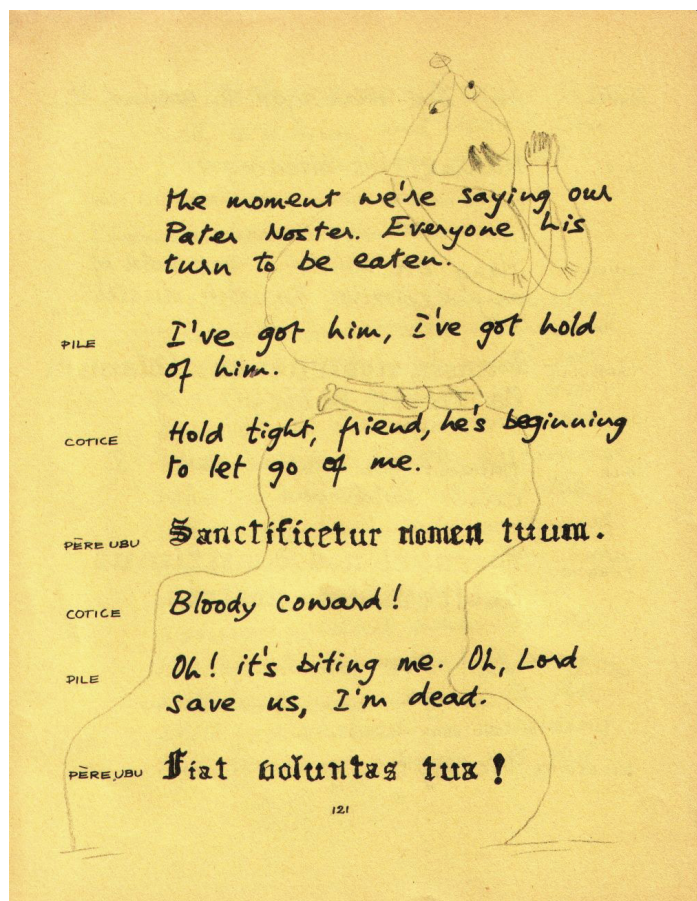 the moment we're saying our
Pater Noster. Everyone his
turn to be eaten.
PILE I've got him, I've got hold
of him.
COTICE Hold tight, friend, he's beginning
to let go of me.
PÈRE UBU Sanctificetur nomen tuum.
COTICE Bloody coward!
PILE Oh! it's biting me. Oh, Lord
save us, I'm dead.
PÈRE UBU Fiat voluntas tua!
121